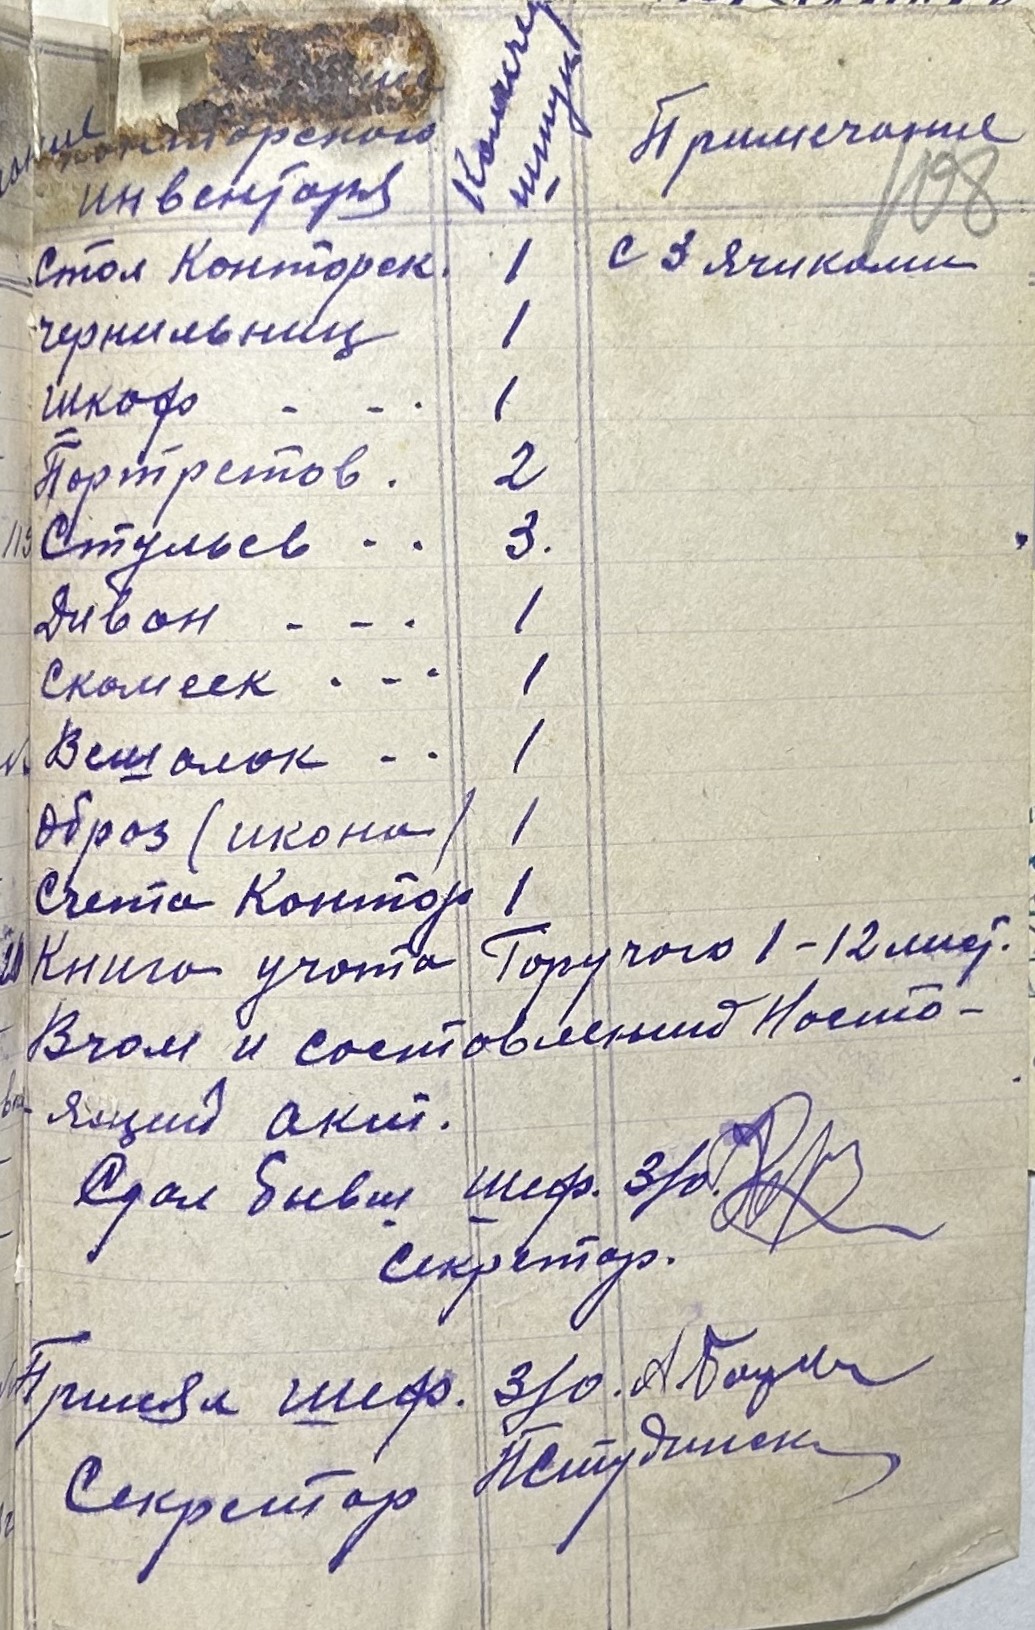 конторского
инвентаря
Количе
штук
Примечание
108
Стол Конторск. 1 с 3 ячиками
чернильниц 1
шкаф - - . 1
Портретов . 2
Стульев - . 3.
Диван - - . 1
Скамеек . - . 1
Вешалок - . 1
Образ (икона) 1
Счета Контор 1
Книга учота Горучого 1-12 лист.
Вчом и составлений Насто-
ящий акт.
Сдал бывш шеф. З/о.
Секретар.
Принял шеф. З/о.
Секретар